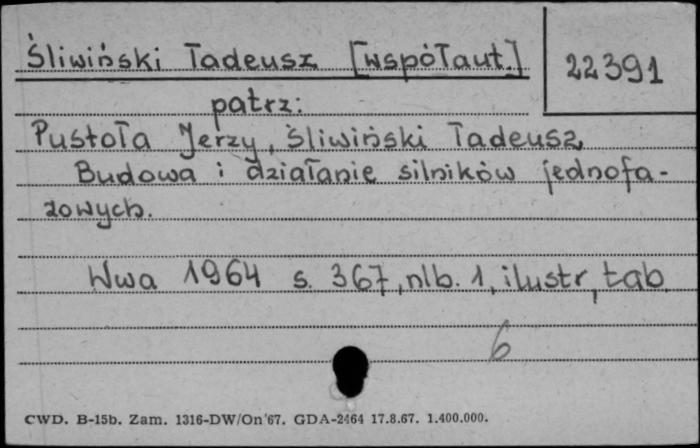 Śliwiński Tadeusz [współaut.]
22391
patrz:
Pustoła Jerzy, Śliwiński Tadeusz
Budowa i działanie silników jednofa-
zowych.
Wwa 1964 s. 367, nlb. 1, ilustr, tab
6
CWD. B-15b. Zam. 1316-DW/On'67. GDA-2464 17.8.67. 1.400.000.